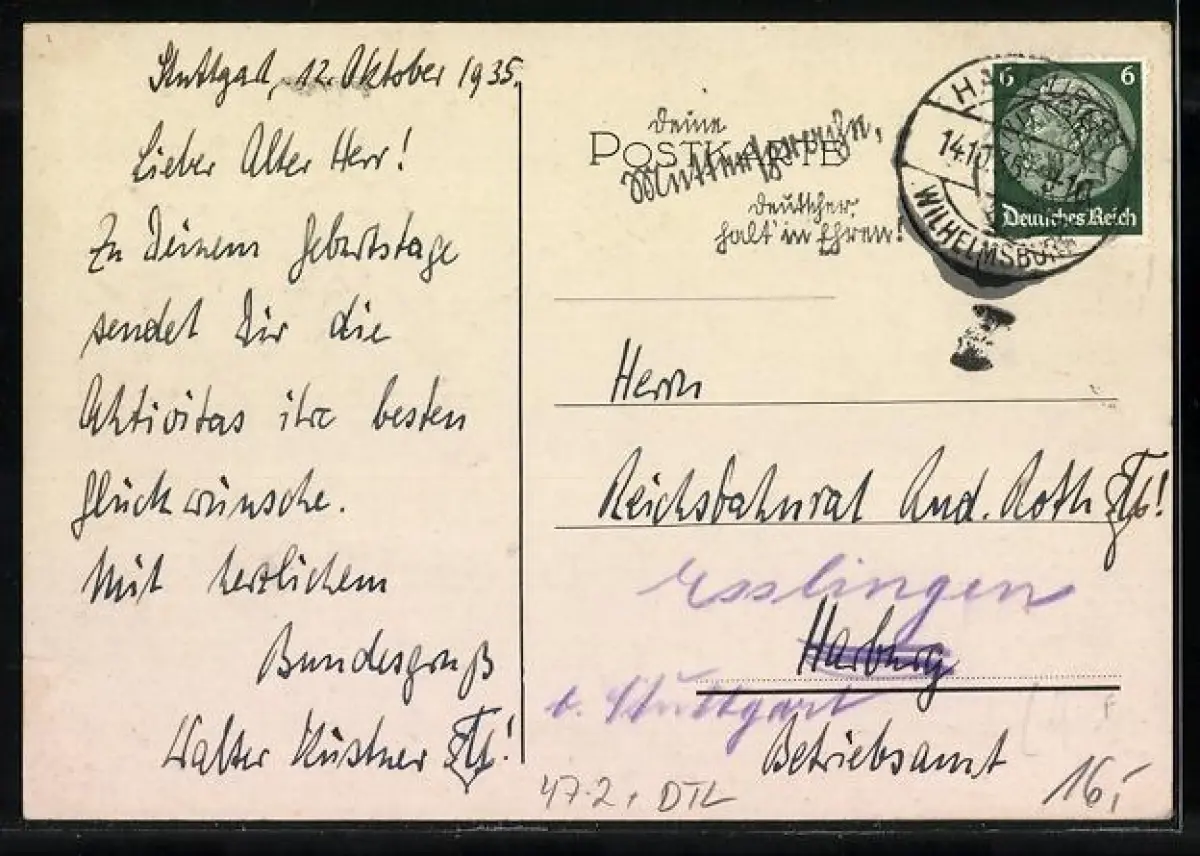 Stuttgart, 12. Oktober 1935.
Lieber Alter Herr!
Zu Deinem Geburtstage
sendet Dir die
Aktivitas ihre besten
Glückwünsche.
Mit herzlichem
Bundesgruß
Walter Küstner
POSTKARTE
deine
Muttersprache,
Deutscher,
halt in Ehren!
HARBURG
14.10.35
WILHELMSBURG
6 6
Deutsches Reich
Herrn
Reichsbahnrat Rud. Roth
Esslingen
Harburg
b. Stuttgart
Betriebsamt
47-2, DTL
16,-